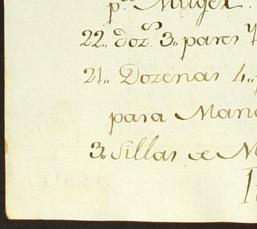 p.ª Muger.
22,, doz.s 3,, pares
21,, Dozenas 4,,
para Man
3,, Sillas de M